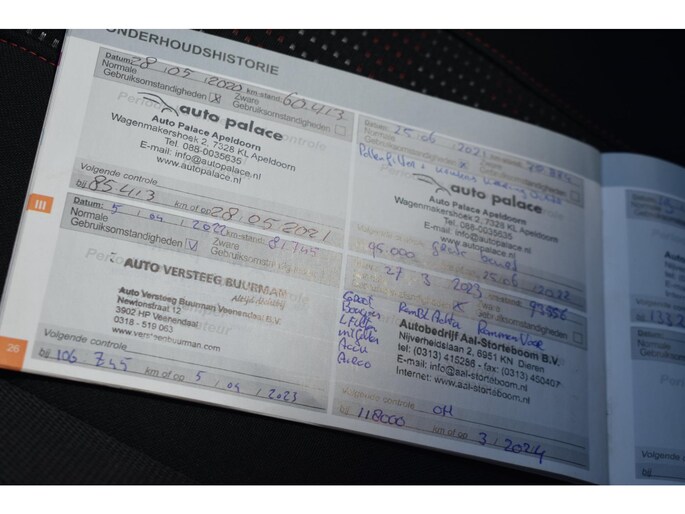 ONDERHOUDSHISTORIE
Datum: 28 , 05 , 2020 km-stand: 60413
Normale Gebruiksomstandigheden X Zware Gebruiksomstandigheden
auto palace
Auto Palace Apeldoorn
Wagenmakershoek 2, 7328 KL Apeldoorn
Tel. 088-0035635
E-mail: info@autopalace.nl
www.autopalace.nl
Volgende controle
bij 85413 km of op 28.05.2021
Datum: 25 06 2021
X
auto palace
Auto Palace Apeldoorn
Wagenmakershoek 2, 7328 KL Apeldoorn
Tel. 088-0035635
E-mail: info@autopalace.nl
www.autopalace.nl
95.000 grote beurt 25.06.2022
III
Datum: 5 / 04 / 2022 km-stand: 81.745
Normale Gebruiksomstandigheden V Zware Gebruiksomstandigheden
AUTO VERSTEEG BUURMAN
Auto Versteeg Buurman Veenendaal B.V.
Newtonstraat 12
3902 HP Veenendaal
0318 - 519 063
www.versteegbuurman.com
Volgende controle
bij 106 745 km of op 5 / 04 / 2023
27 3 2023 93856
X
Groot
Bougies
Accu
Airco
Autobedrijf Aal-Storteboom B.V.
Nijverheidslaan 2, 6951 KN Dieren
tel: (0313) 415286 - fax: (0313) 450407
E-mail: info@aal-storteboom.nl
Internet: www.aal-storteboom.nl
Volgende controle OH
bij 118000 km of op 3 / 2024
26
Volgende
bij